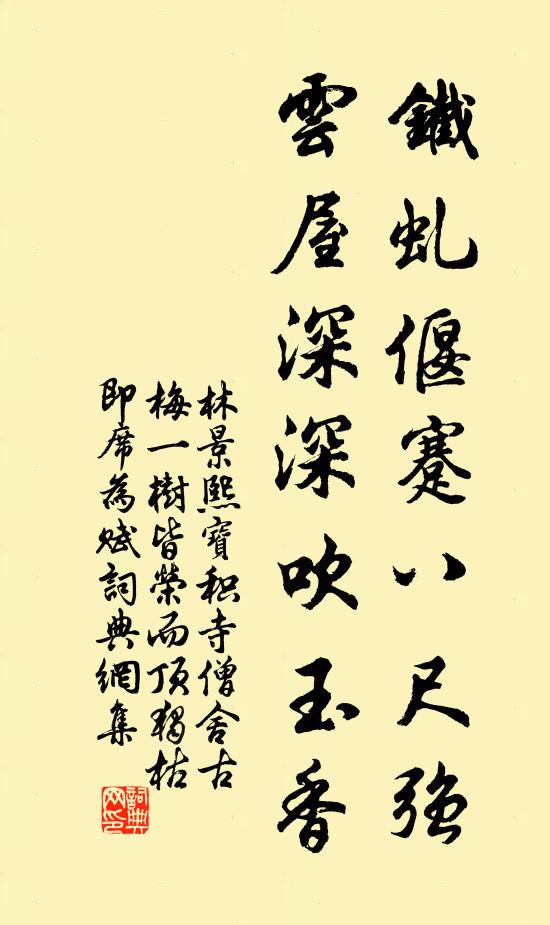 鐵虬偃蹇八尺強
雲屋深深吹玉香
林景熙寶积寺僧舍古
梅一樹皆榮而頂獨枯
即席為賦詞典網集
詞典网印